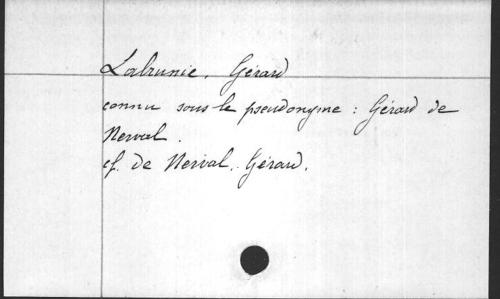 Labrunie, Gérard
connu sous le pseudonyme : Gérard de
Nerval.
cf. de Nerval, Gérard.